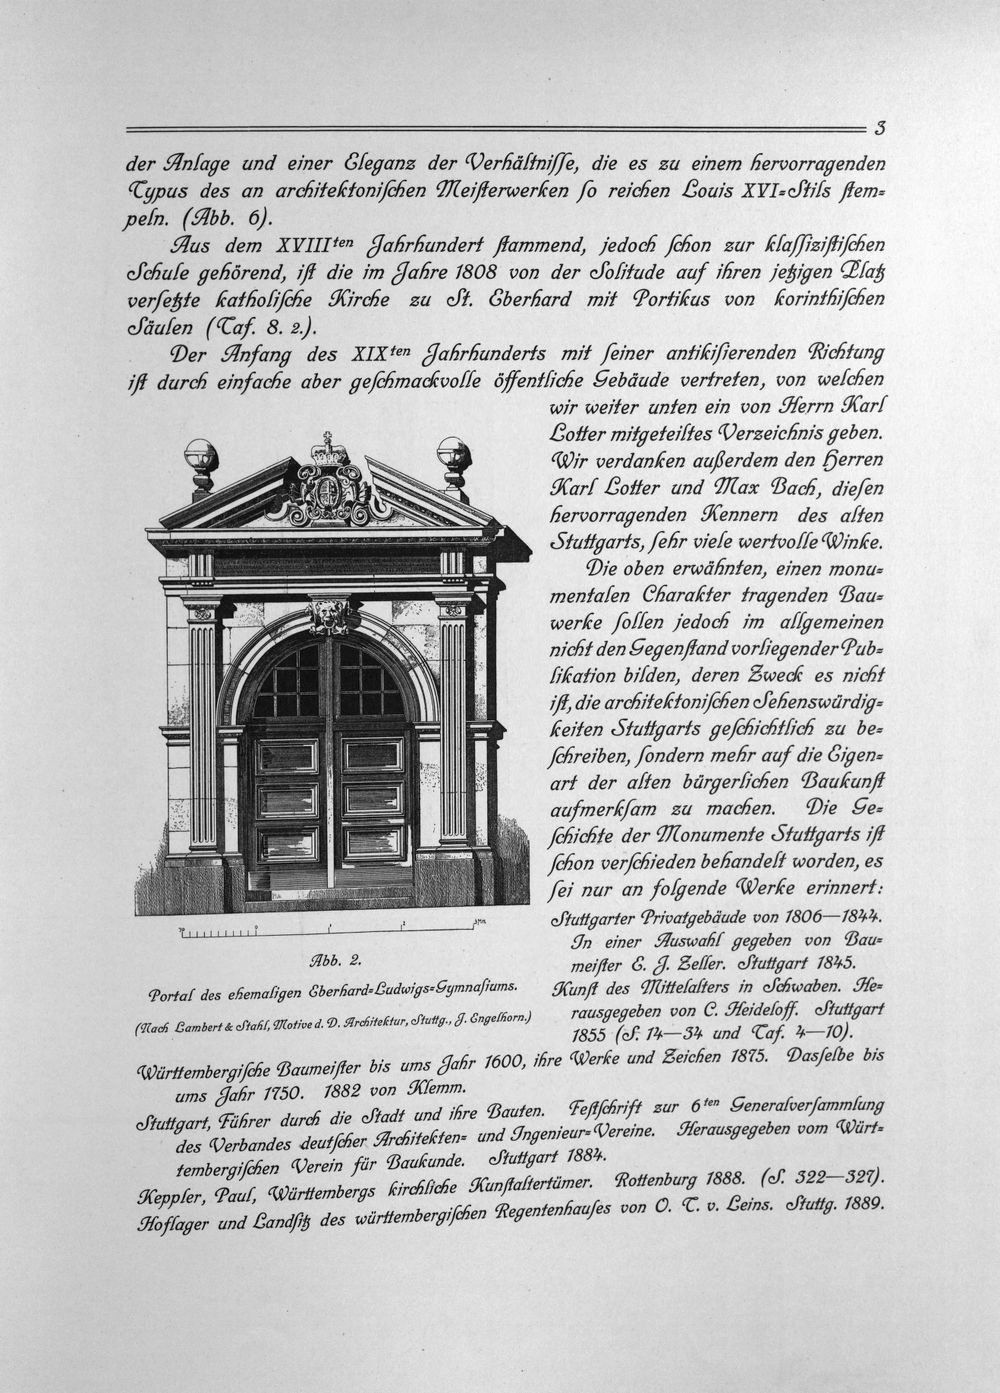 3
der Anlage und einer Eleganz der Verhältniſſe, die es zu einem hervorragenden
Typus des an architektoniſchen Meiſterwerken ſo reichen Louis XVI=Stils ſtem=
peln. (Abb. 6).
Aus dem XVIIIten Jahrhundert ſtammend, jedoch ſchon zur klaſſiziſtiſchen
Schule gehörend, iſt die im Jahre 1808 von der Solitude auf ihren jetzigen Platz
verſetzte katholiſche Kirche zu St. Eberhard mit Portikus von korinthiſchen
Säulen (Taf. 8. 2.).
Der Anfang des XIXten Jahrhunderts mit ſeiner antikiſierenden Richtung
iſt durch einfache aber geſchmackvolle öffentliche Gebäude vertreten, von welchen
wir weiter unten ein von Herrn Karl
Lotter mitgeteiltes Verzeichnis geben.
Wir verdanken außerdem den Herren
Karl Lotter und Max Bach, dieſen
hervorragenden Kennern des alten
Stuttgarts, ſehr viele wertvolle Winke.
Die oben erwähnten, einen monu=
mentalen Charakter tragenden Bau=
werke ſollen jedoch im allgemeinen
nicht den Gegenſtand vorliegender Pub=
likation bilden, deren Zweck es nicht
iſt, die architektoniſchen Sehenswürdig=
keiten Stuttgarts geſchichtlich zu be=
ſchreiben, ſondern mehr auf die Eigen=
art der alten bürgerlichen Baukunſt
aufmerkſam zu machen. Die Ge=
ſchichte der Monumente Stuttgarts iſt
ſchon verſchieden behandelt worden, es
ſei nur an folgende Werke erinnert:
Stuttgarter Privatgebäude von 1806—1844.
In einer Auswahl gegeben von Bau=
meiſter E. J. Zeller. Stuttgart 1845.
Kunſt des Mittelalters in Schwaben. He=
rausgegeben von C. Heideloff. Stuttgart
1855 (S. 14—34 und Taf. 4—10).
10 0 1 2 3 Mtr.
Abb. 2.
Portal des ehemaligen Eberhard=Ludwigs=Gymnaſiums.
(Nach Lambert & Stahl, Motive d. D. Architektur, Stuttg., J. Engelhorn.)
Württembergiſche Baumeiſter bis ums Jahr 1600, ihre Werke und Zeichen 1875. Dasſelbe bis
ums Jahr 1750. 1882 von Klemm.
Stuttgart, Führer durch die Stadt und ihre Bauten. Feſtſchrift zur 6ten Generalverſammlung
des Verbandes deutſcher Architekten= und Ingenieur=Vereine. Herausgegeben vom Würt=
tembergiſchen Verein für Baukunde. Stuttgart 1884.
Keppler, Paul, Württembergs kirchliche Kunſtaltertümer. Rottenburg 1888. (S. 322—327).
Hoflager und Landſitz des württembergiſchen Regentenhauſes von O. T. v. Leins. Stuttg. 1889.